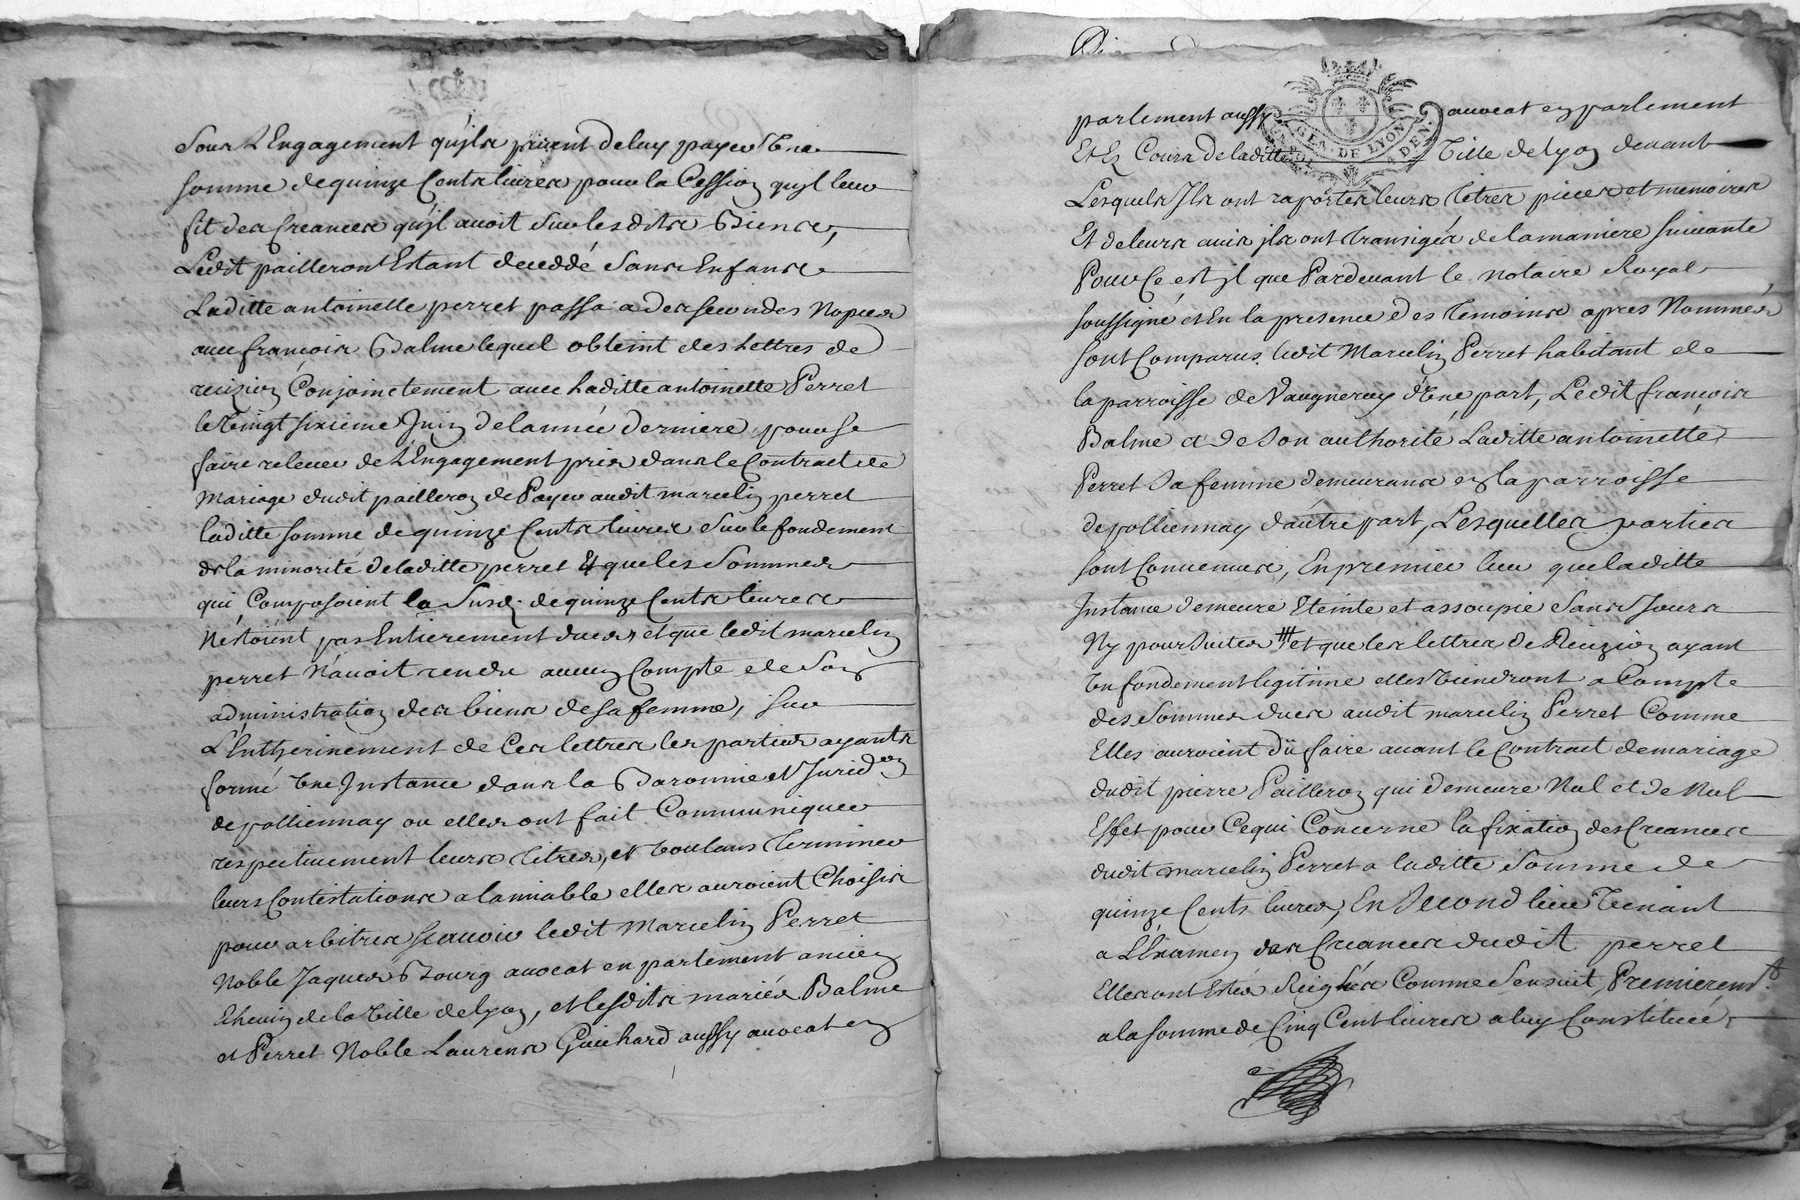 Sous L'Engagement qu'jls prirent de luy payer Vne
somme de quinze Cents livres pour la Cession qujl leur
fit des Creances qu'jl auoit sur lesdits Biens,
Ledit pailleront Estant deceddé sans Enfans
Laditte antoinette perret passa a des secondes Nopces
auec françois Balme lequel obteint des Lettres de
recizion Conjoinctement auec Laditte antoinette Perret
le Vingt sixieme Juin de lannée derniere pour se
faire releuer de L'Engagement pris dans le Contract de
Mariage dudit pailleron de Payer audit marcelin perret
laditte somme de quinze Cents livres sur le fondement
de la minorité de laditte perret Et que les sommes
qui Composoient la Susd. de quinze Cents livres
N'estoient pas Entierement dues et que ledit marcelin
perret N'auoit rendu aucun Compte de Son
administration des biens de sa femme, sur
L'Entherinement de Ces lettres les parties ayants
formé Vne Jnstance dans la Baronnie et Jurid.on
de polliennay ou elles ont fait Communiquer
respectiuement leurs titres, et Voulans Terminer
leurs Contestations a lamiable elles auroient Choisis
pour arbitres scauoir ledit Marcelin Perret
Noble Jaques Bourg auocat en parlement ancien
Echeuin de la Ville de lyon, et lesdits mariés Balme
et Perret Noble Laurens Guichard aussy auocat en
parlement aussy auocat en parlement
Et Es Cours de laditte Ville de lyon devant
Lesquels Jls ont raportés leurs titres pieces et memoires
Et de leurs auis jls ont transigés de la maniere suiuante
Pour Ce est jl que Pardeuant le notaire Royal
soussigné et En la presence des temoins apres Nommés
sont Comparus ledit Marcelin Perret habitant de
la parroisse de Vaugneray d'Vne part, Ledit françois
Balme et de Son authorité Laditte antoinette
Perret Sa femme demeurans en la parroisse
de polliennay d'autre part, Lesquelles parties
sont Conuenues, En premier lieu que laditte
Jnstance demeure Eteinte et assoupie Sans Jours
Ny poursuites et que les lettres de Recizion ayant
Vn fondement legitime elles Viendront a Compte
des sommes dues audit marcelin Perret Comme
Elles auroient dü faire auant le Contract de mariage
dudit pierre Pailleron qui demeure Nul et de Nul
Effet pour Ce qui Concerne la fixation des Creances
dudit marcelin Perret a laditte Somme de
quinze Cents livres, En Second lieu Venant
a L'Examen des Creances dudit perret
Elles ont Estés Reiglées Comme S'ensuit, Premierem.t
a la somme de Cinq Cent livres a luy Constituée,
GEN. DE LYON